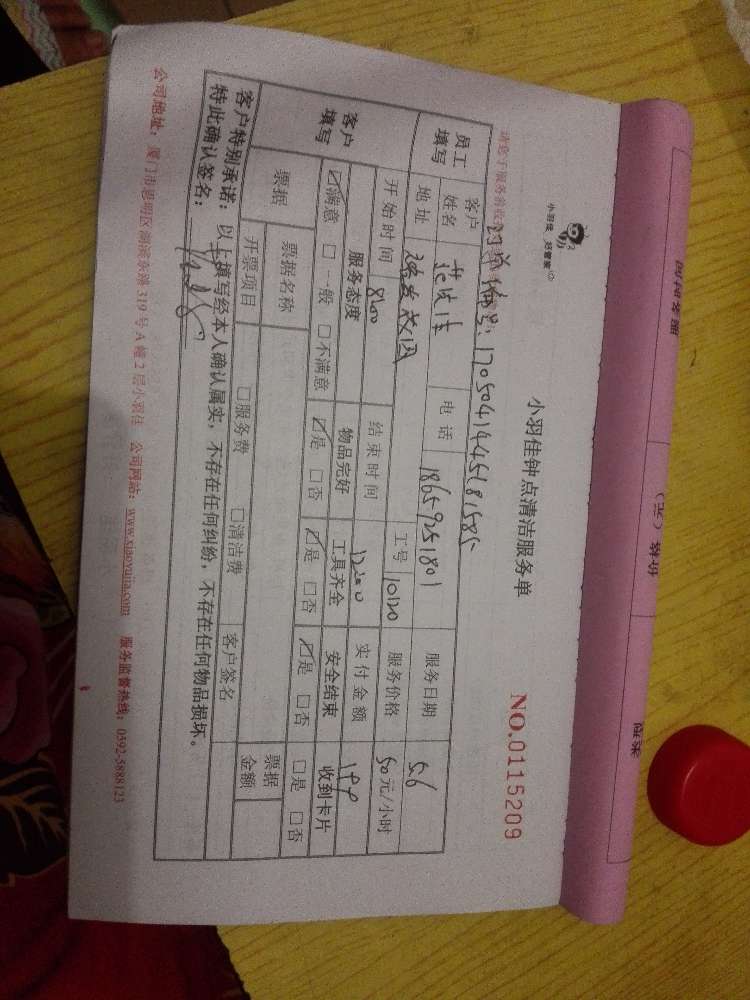 小羽佳 好管家
小羽佳钟点清洁服务单
NO.0115209
订单编号:1705041445181585
员工填写
客户姓名
电话 18659251801
服务日期 5.6
地址
工号 10120
服务价格 50元/小时
开始时间 8:00
结束时间 12:00
实付金额 199
客户填写
服务态度 物品完好 工具齐全 安全结束 收到卡片
☑满意 □一般 □不满意 ☑是 □否 ☑是 □否 ☑是 □否 □是 □否
票据
票据名称
票据金额
开票项目 □服务费 □清洁费 客户签名
客户特别承诺:以上填写经本人确认属实,不存在任何纠纷,不存在任何物品损坏。
特此确认签名:
公司地址:厦门市思明区湖滨东路319号A幢2层小羽佳 公司网站:www.xiaoyujia.com 服务监督热线:0592-5888123